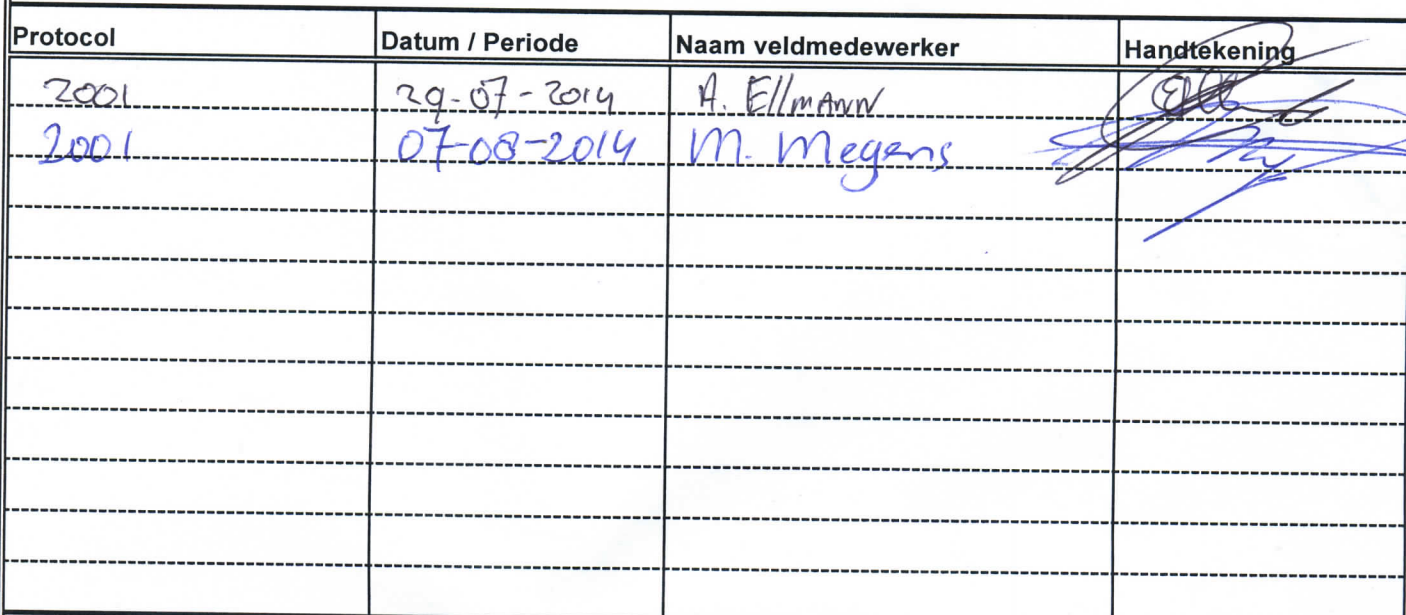 Protocol Datum / Periode Naam veldmedewerker Handtekening
2001 29-07-2014 A. Ellmann
2001 07-08-2014 M. Megens